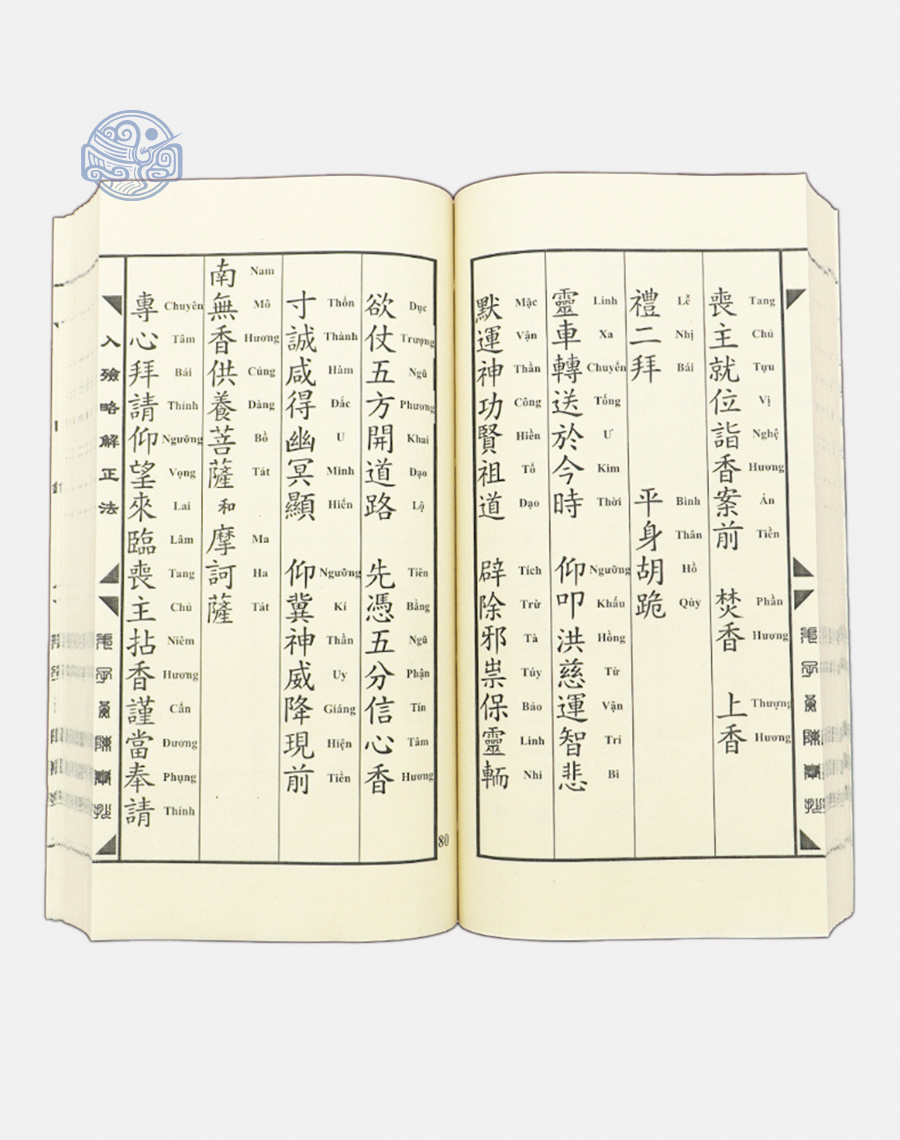 喪主就位詣香案前 焚香 上香
Tang Chủ Tựu Vị Nghệ Hương Án Tiền Phần Hương Thượng Hương
禮二拜 平身胡跪
Lễ Nhị Bái Bình Thân Hồ Qùy
靈車轉送於今時 仰叩洪慈運智悲
Linh Xa Chuyển Tống Ư Kim Thời Ngưỡng Khấu Hồng Từ Vận Trí Bi
默運神功賢祖道 辟除邪祟保靈輀
Mặc Vận Thần Công Hiền Tổ Đạo Tích Trừ Tà Túy Bảo Linh Nhi
欲仗五方開道路 先憑五分信心香
Dục Trượng Ngũ Phương Khai Đạo Lộ Tiên Bằng Ngũ Phận Tín Tâm Hương
寸誠咸得幽冥顯 仰冀神威降現前
Thốn Thành Hàm Đắc U Minh Hiển Ngưỡng Kí Thần Uy Giáng Hiện Tiền
南無香供養菩薩和摩訶薩
Nam Mô Hương Cúng Dàng Bồ Tát Ma Ha Tát
專心拜請仰望來臨喪主拈香謹當奉請
Chuyên Tâm Bái Thỉnh Ngưỡng Vọng Lai Lâm Tang Chủ Niêm Hương Cẩn Đương Phụng Thỉnh
入殮略解正法
80